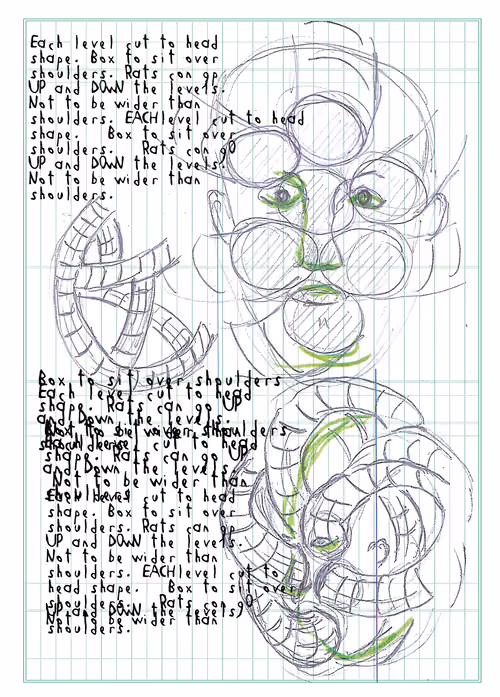 Each level cut to head
shape. Box to sit over
shoulders. Rats can go
UP and DOWN the levels.
Not to be wider than
shoulders. EACH level cut to head
shape. Box to sit over
shoulders. Rats can go
UP and DOWN the levels.
Not to be wider than
shoulders.
Box to sit over shoulders
Each level cut to head
shape. Rats can go UP
and Down the levels.
Not to be wider
cut to head
shape. Rats can go UP
and Down the levels.
Not to be wider than
cut to head
shape. Box to sit over
shoulders. Rats can go
UP and DOWN the levels.
Not to be wider than
shoulders. EACH level cut to
head shape. Box to sit over
shoulders. Rats can go
UP and DOWN the levels.
Not to be wider than
shoulders.